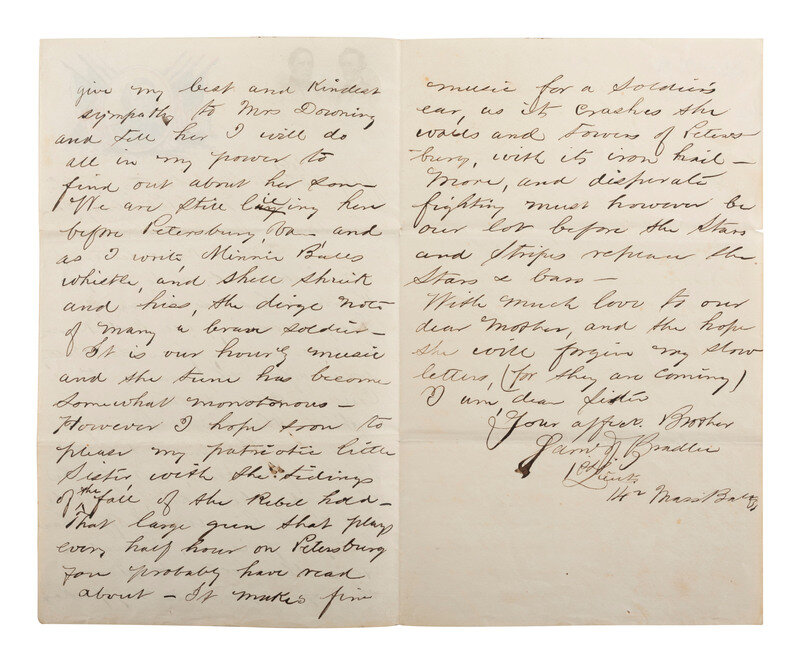 give my best and kindest
sympathy to Mrs Downing
and tell her I will do
all in my power to
find out about her son—
We are still lieing here
before Petersburg, Va— and
as I write Minnie Balls
whistle, and shell shriek
and hiss, the dirge note
of many a brave soldier—
It is our hourly music
and the tune has become
somewhat monotonous—
However I hope soon to
please my patriotic little
Sister with the tidings
of the fall of the Rebel hold—
That large gun that plays
every half hour on Petersburg
you probably have read
about— It makes fine
music for a soldier's
ear, as it crashes the
walls and towers of Peters-
burg, with its iron hail—
More, and disperate
fighting must however be
our lot before the Stars
and Stripes replace the
Stars & bars—
With much love to our
dear Mother, and the hope
she will forgive my slow
letters, (for they are coming)
I am, dear Sister
Your affec. Brother
J Bradlee
1st Lieut
14th Mass Baty